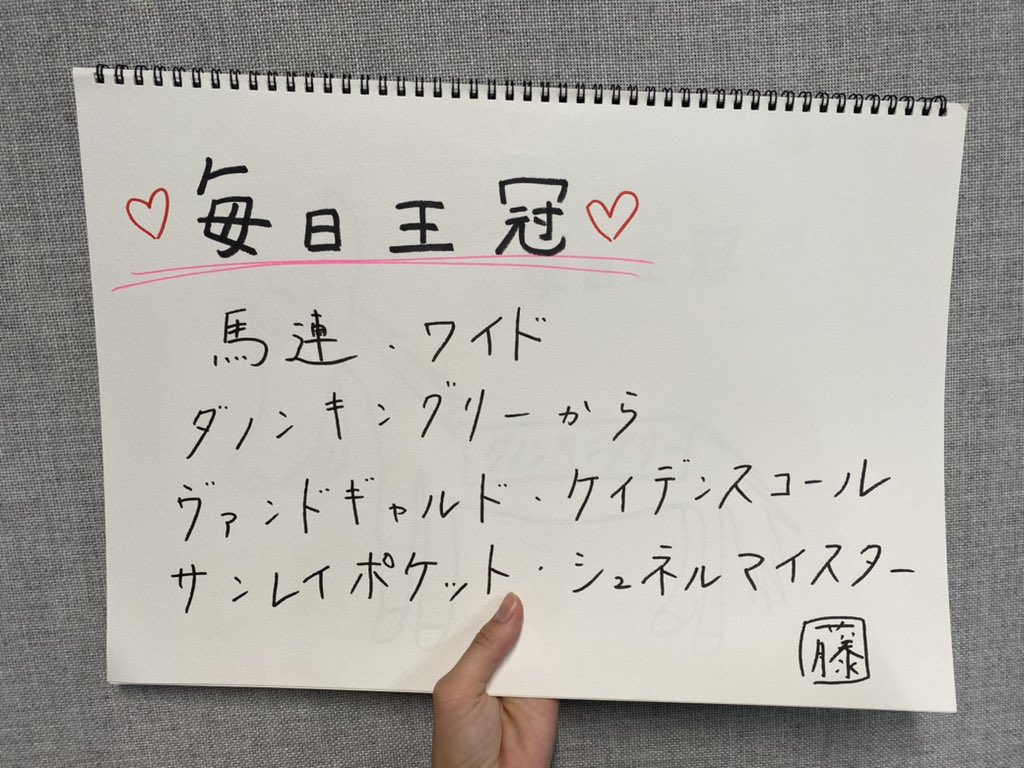 ♡毎日王冠♡
馬連・ワイド
ダノンキングリーから
ヴァンドギャルド・ケイデンスコール
サンレイポケット・シュネルマイスター
藤